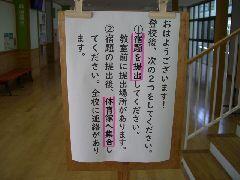 おはようございます！
登校後、次の２つをしてください。
①宿題を提出してください。
教室前に提出場所があります。
②宿題の提出後、体育館へ集合し
てください。全校に連絡があり
ます。